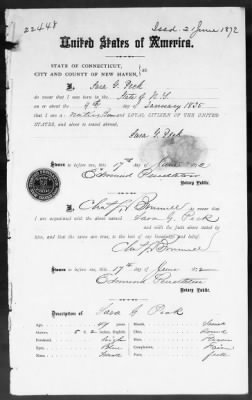 22448
Issd. 21 June 1872
United States of America.
STATE OF CONNECTICUT,
CITY AND COUNTY OF NEW HAVEN, } ss.
I, Sara G. Peck
do swear that I was born in the State of N.Y.
on or about the 9th day of January 1825
that I am a native and LOYAL CITIZEN OF THE UNITED
STATES, and about to travel abroad.
Sara G. Peck
Sworn to before me, this 17th day of June
Notary Public.
I,
do swear that
I am acquainted with the above named Sara G. Peck
and with the facts above stated by
him, and that the same are true, to the best of my knowledge and belief.
Sworn to before me, this 17th day of June
Notary Public.
Description of Sara G. Peck
Age, 47 years
Mouth, Small
Stature, 5 2 inches, English.
Chin, Round
Forehead, high
Hair, Brown
Eyes, Blue
Complexion, Fair
Nose, Small
Face,